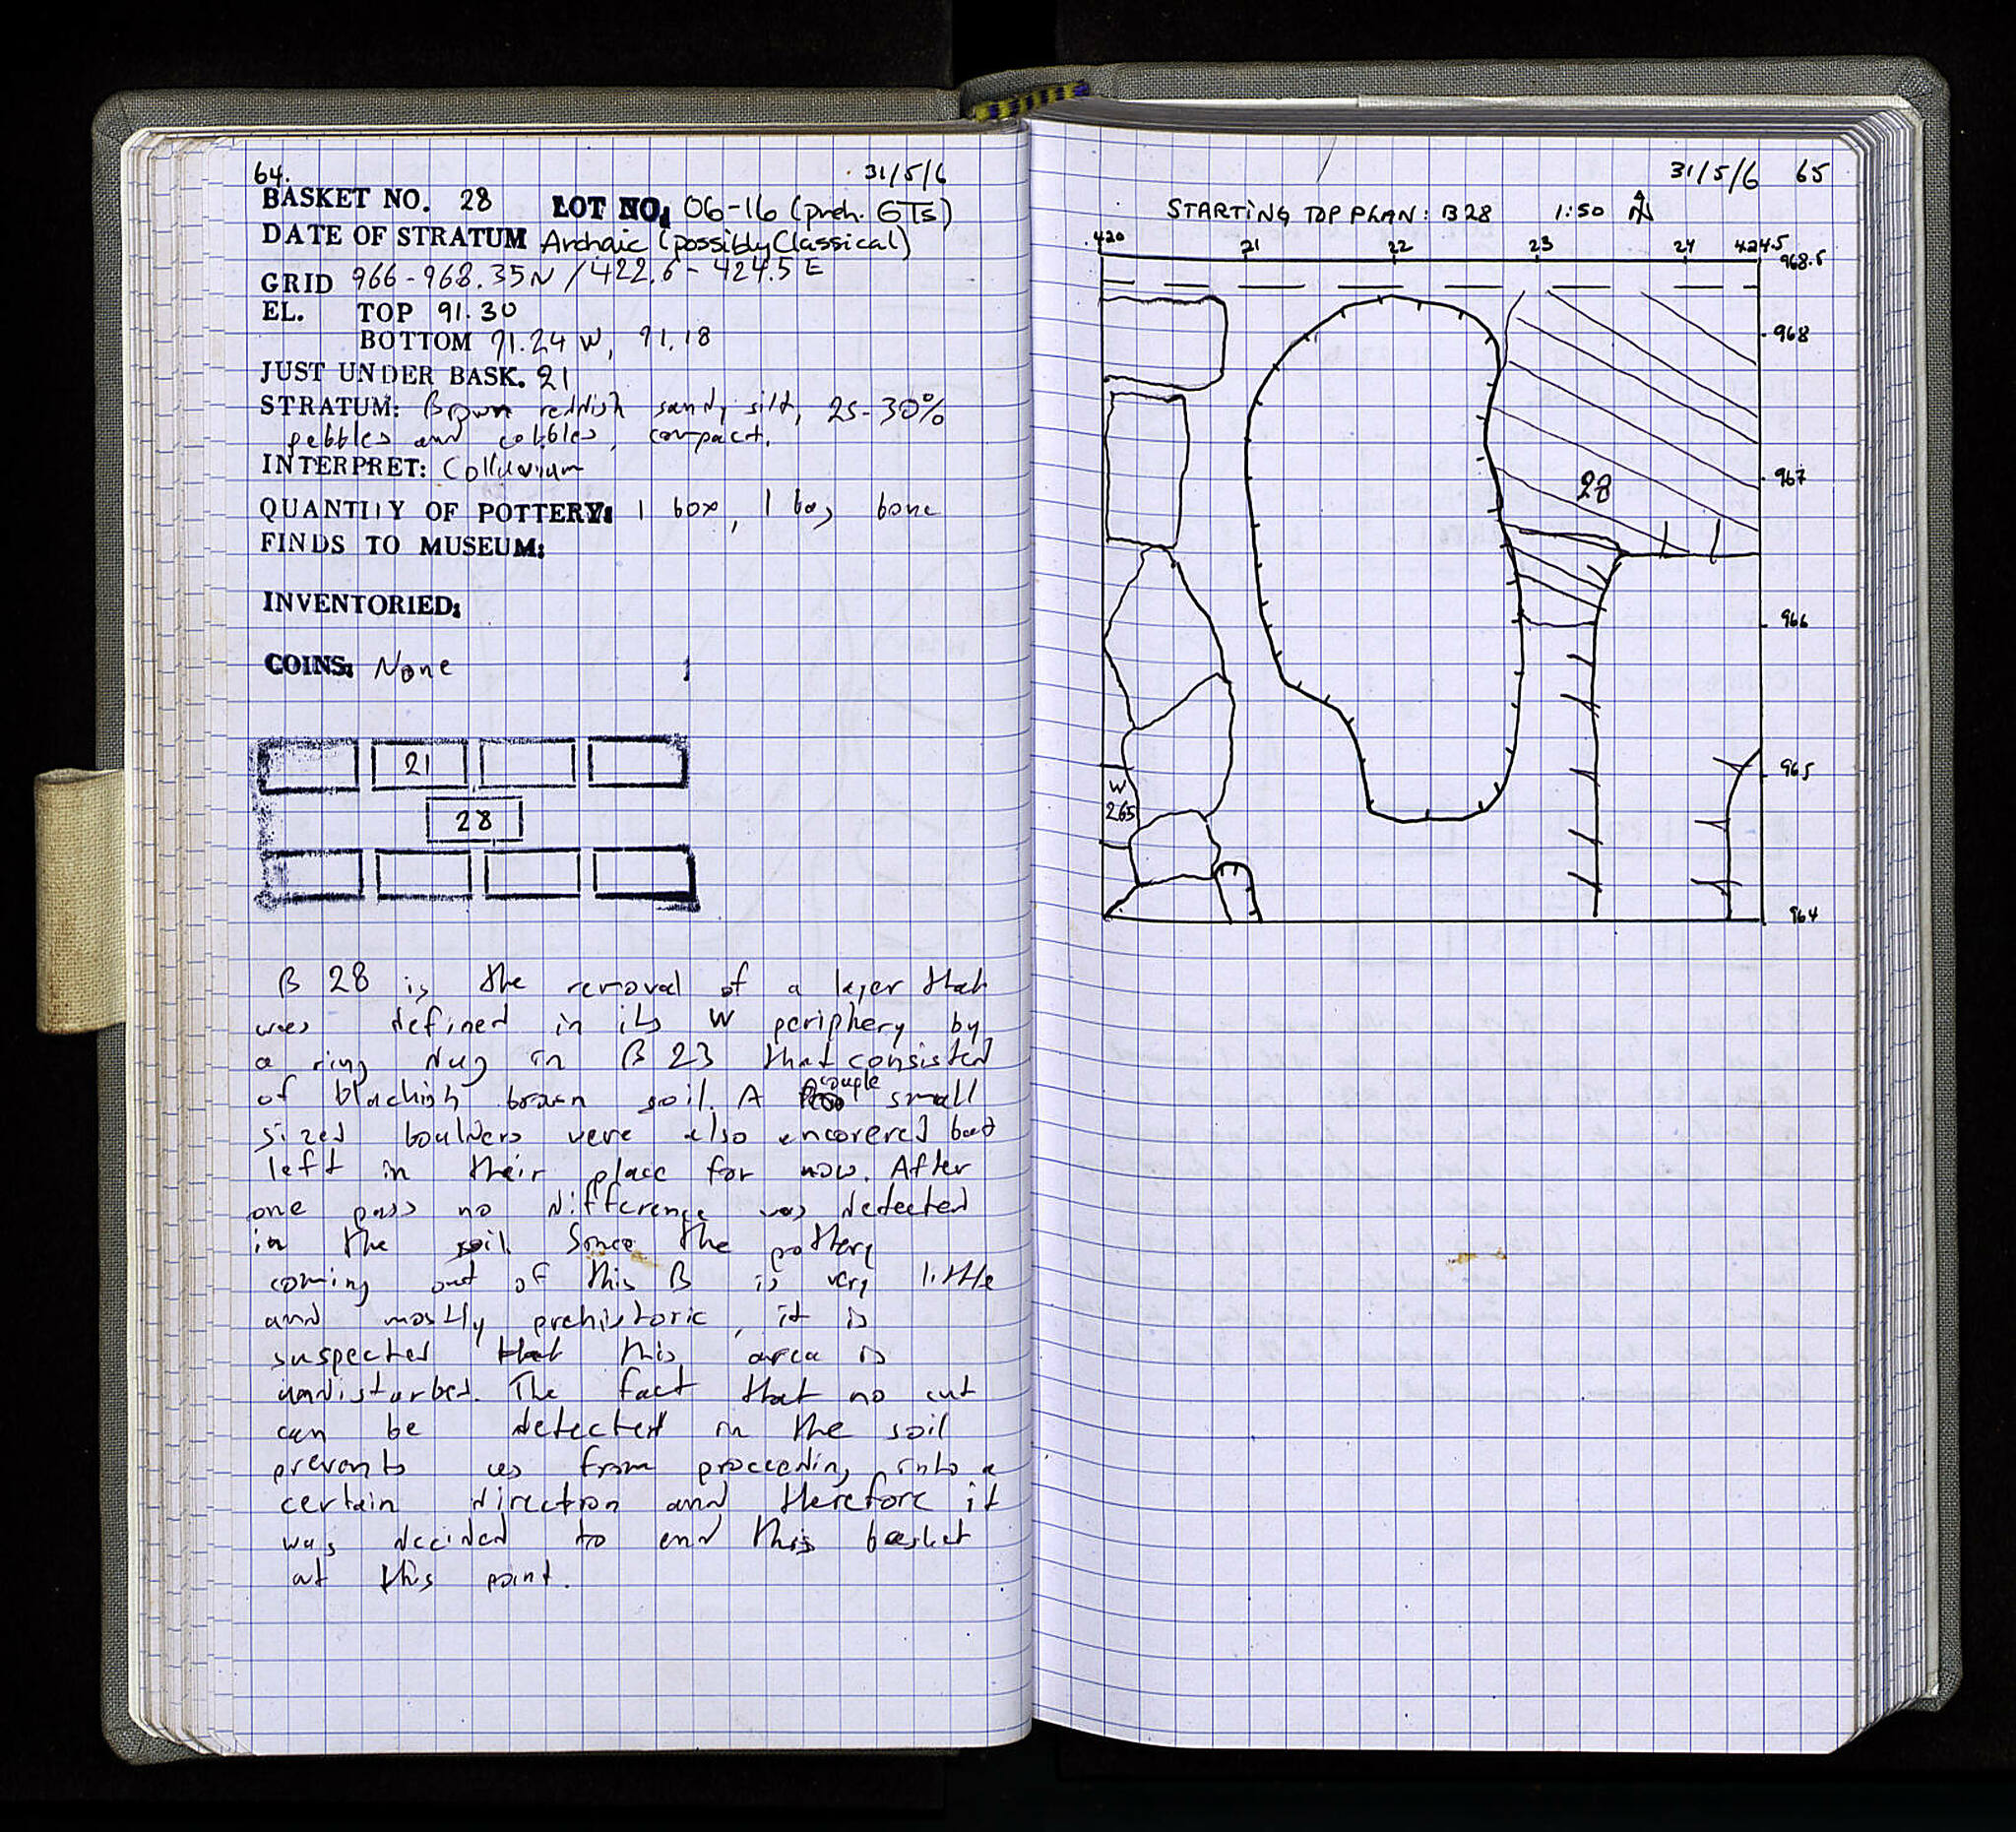 64. 31/5/6
BASKET NO. 28 LOT NO. 06-16 (preh. GTs)
DATE OF STRATUM Archaic (possibly Classical)
GRID 966-968.35N / 422.6-424.5 E
EL. TOP 91.30
BOTTOM 91.24 W, 91.18
JUST UNDER BASK. 21
STRATUM: Brown reddish sandy silt, 25-30%
pebbles and cobbles, compact.
INTERPRET: Colluvium
QUANTITY OF POTTERY: 1 box, 1 bag bone
FINDS TO MUSEUM:
INVENTORIED:
COINS: None
21
28
B 28 is the removal of a layer that
was defined in its W periphery by
a ring dug in B 23 that consisted
of blackish brown soil. A couple small
sized boulders were also encovered but
left in their place for now. After
one pass no difference was detected
in the soil. Since the pottery
coming out of this B is very little
and mostly prehistoric, it is
suspected that this area is
undisturbed. The fact that no cut
can be detected in the soil
prevents us from proceeding into a
certain direction and therefore it
was decided to end this basket
at this point.
31/5/6 65
STARTING TOP PLAN: B28 1:50 N
420 21 22 23 24 424.5
968.5
968
967
28
966
965
W
265
964